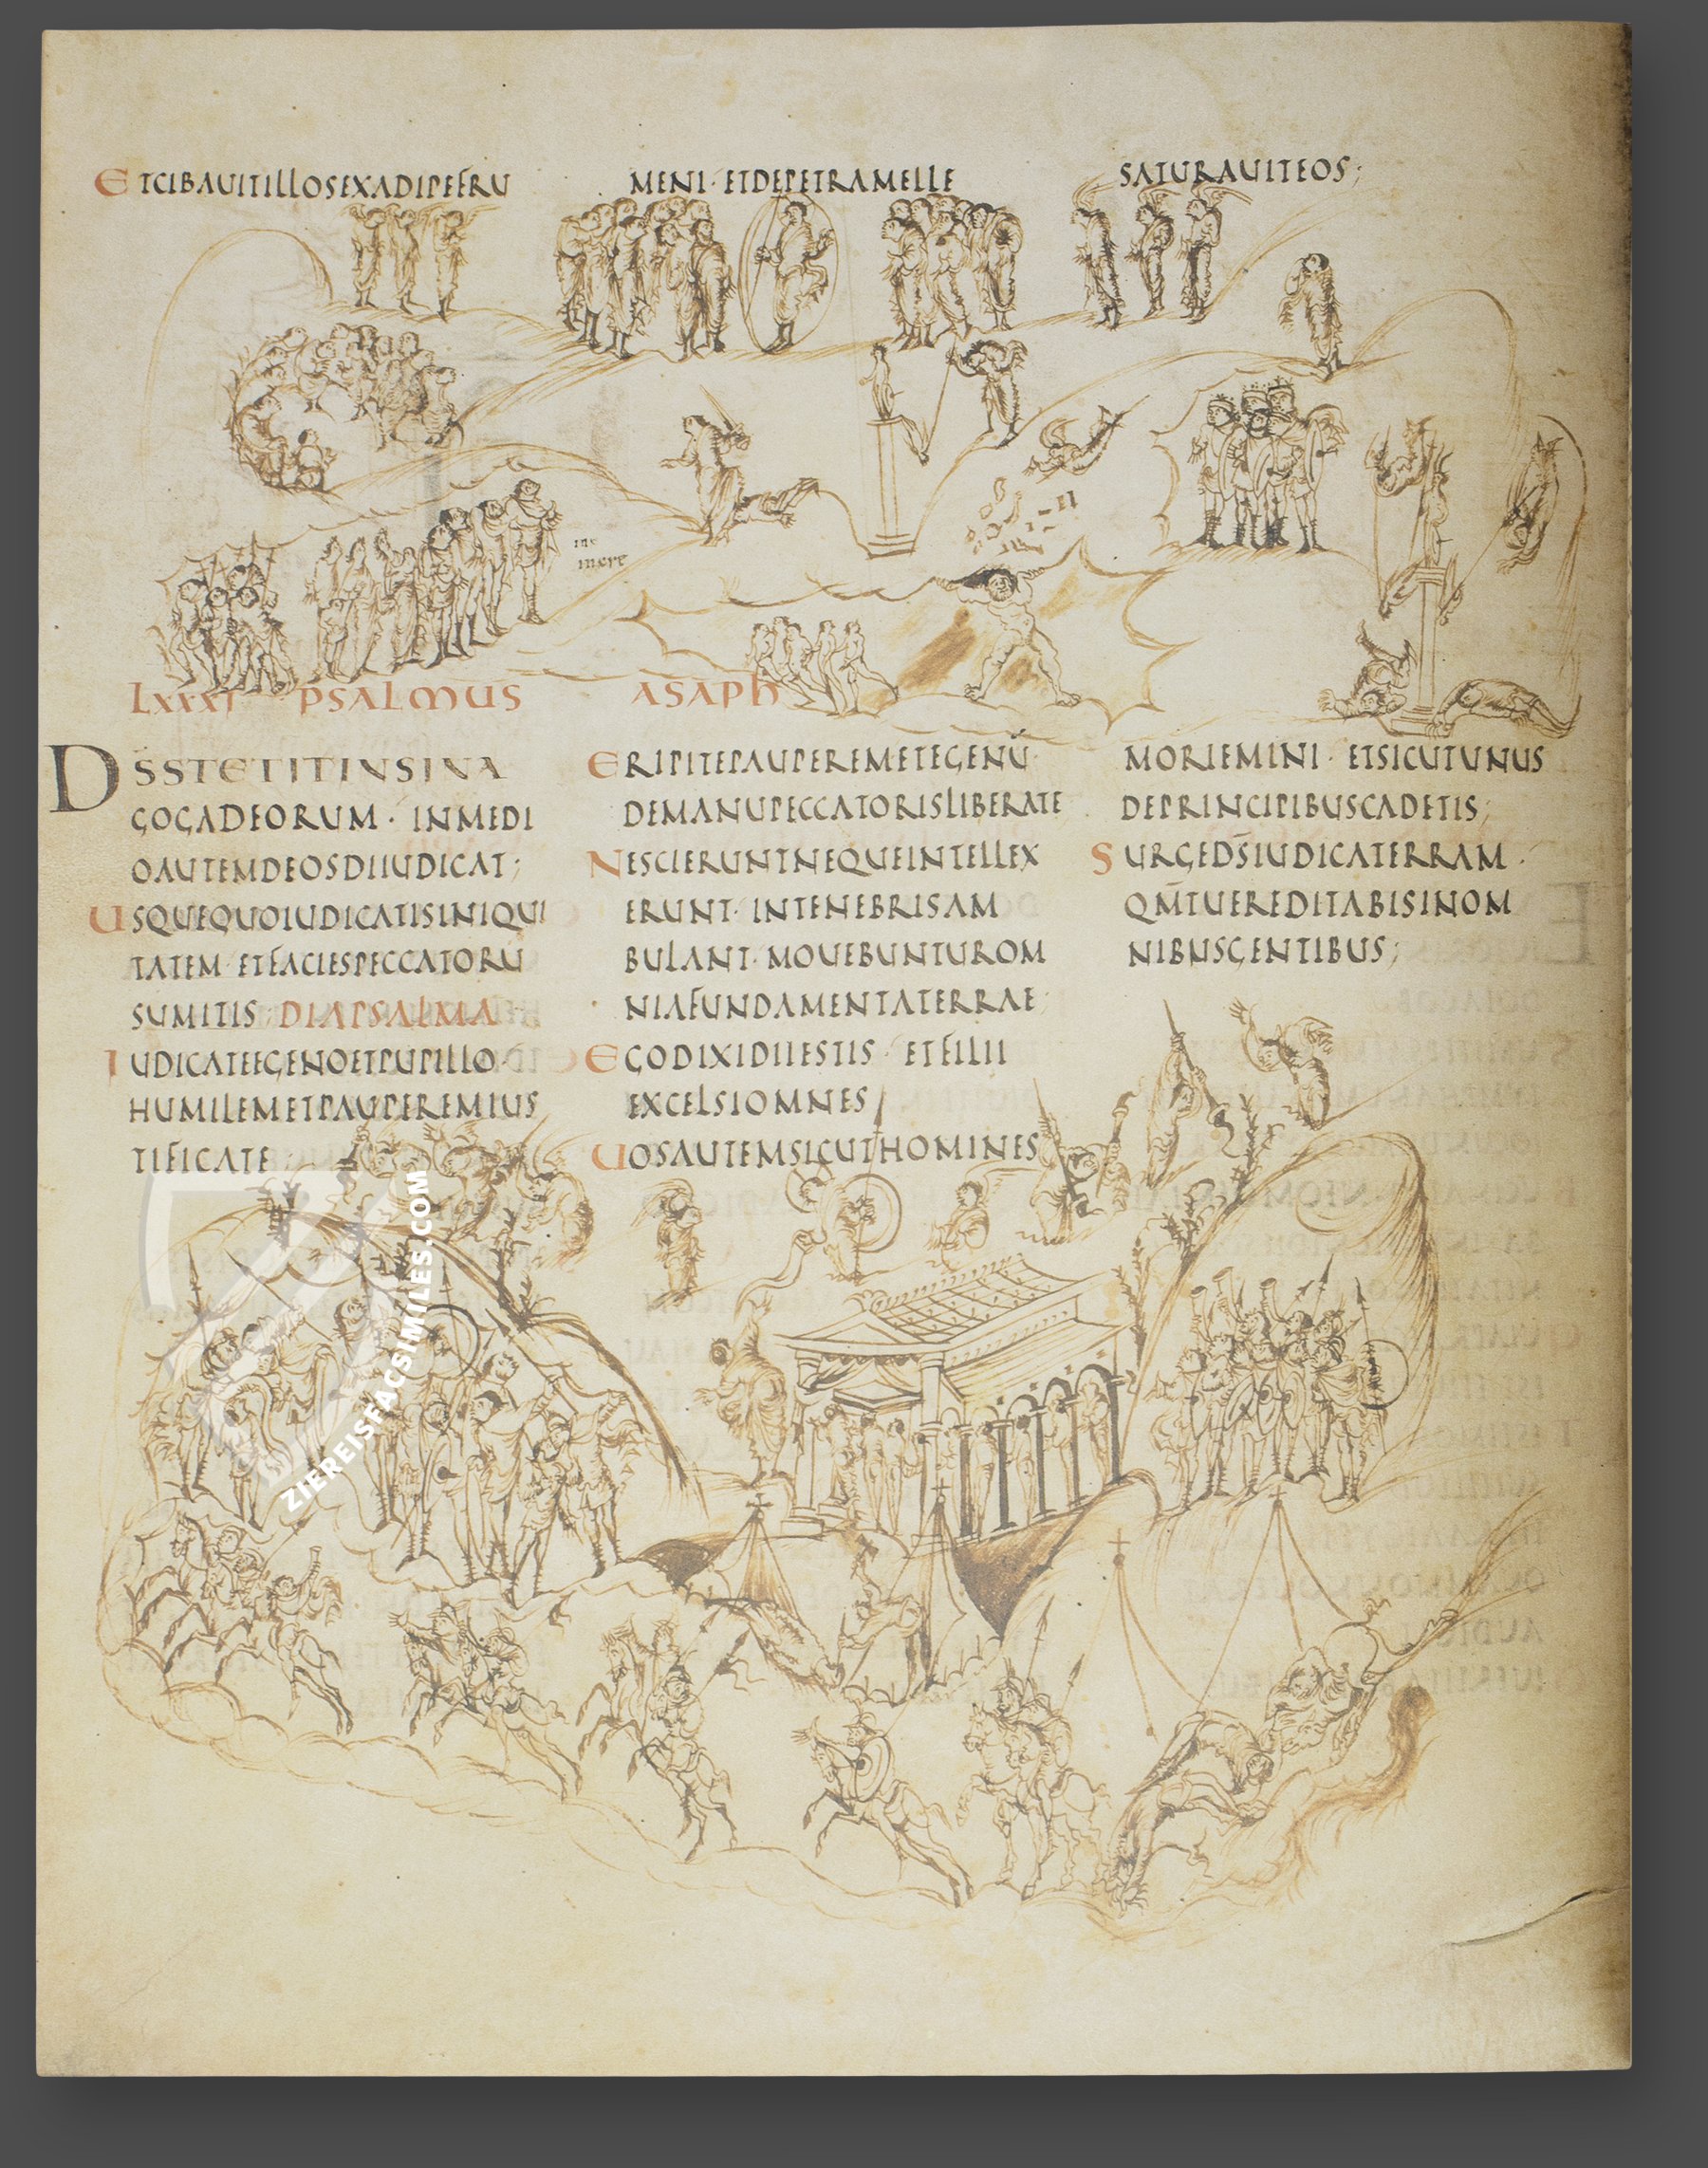 ETCIBAUITILLOSEXADIPEFRU
MENI· ETDEPETRAMELLE
SATURAUITEOS;
LXXXI PSALMUS ASAPH
DSSTETITINSINA
GOGADEORUM· INMEDI
OAUTEMDEOSDIIUDICAT;
USQUEQUOIUDICATISINIQUI
TATEM· ETFACIESPECCATORŪ
SUMITIS; DIAPSALMA
IUDICATEEGENOETPUPILLO·
HUMILEMETPAUPEREMIUS
TIFICATE;
ERIPITEPAUPEREMETEGENŪ·
DEMANUPECCATORISLIBERATE
NESCIERUNTNEQUEINTELLEX
ERUNT· INTENEBRISAM
BULANT· MOUEBUNTUROM
NIAFUNDAMENTATERRAE;
EGODIXIDIIESTIS· ETFILII
EXCELSIOMNES
UOSAUTEMSICUTHOMINES
MORIEMINI· ETSICUTUNUS
DEPRINCIPIBUSCADETIS;
SURGEDS̄IUDICATERRAM·
QM̄TUEREDITABISINOM
NIBUSGENTIBUS;
ZIEREISFACSIMILES.COM